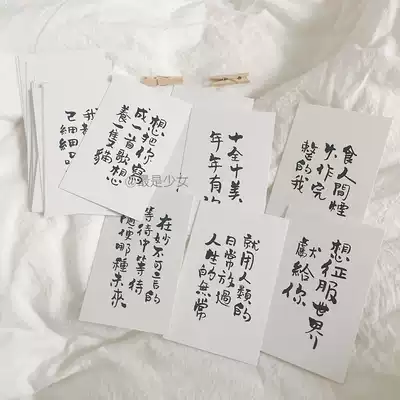 想把你寫
成一首歌想
養一隻貓
十全十美
年年有
食人間煙
火作完
整的我
在妙不可言的
等待中等待
種未來
就用人類的
日常放過
人生的無常
想征服世界
獻給你
@最是少女